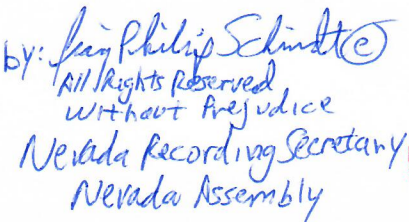 by: Philip Schmidt ©
All Rights Reserved
Without Prejudice
Nevada Recording Secretary
Nevada Assembly